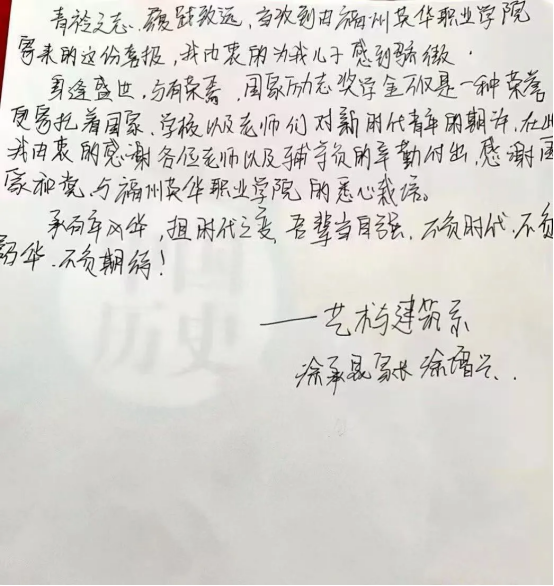 青衿之志、履践致远，当收到由福州英华职业学院
寄来的这份喜报，我由衷的为我儿子感到骄傲．
身逢盛世，与有荣焉，国家励志奖学金不仅是一种荣誉
更寄托着国家、学校以及老师们对新时代青年的期许，在此
我由衷的感谢各位老师以及辅导员的辛勤付出，感谢国
家和党，与福州英华职业学院的悉心栽培。
承百年风华，担时代之变，吾辈当自强，不负时代、不负
韶华、不负期待！
——艺术与建筑系
徐承晟家长 徐
历史